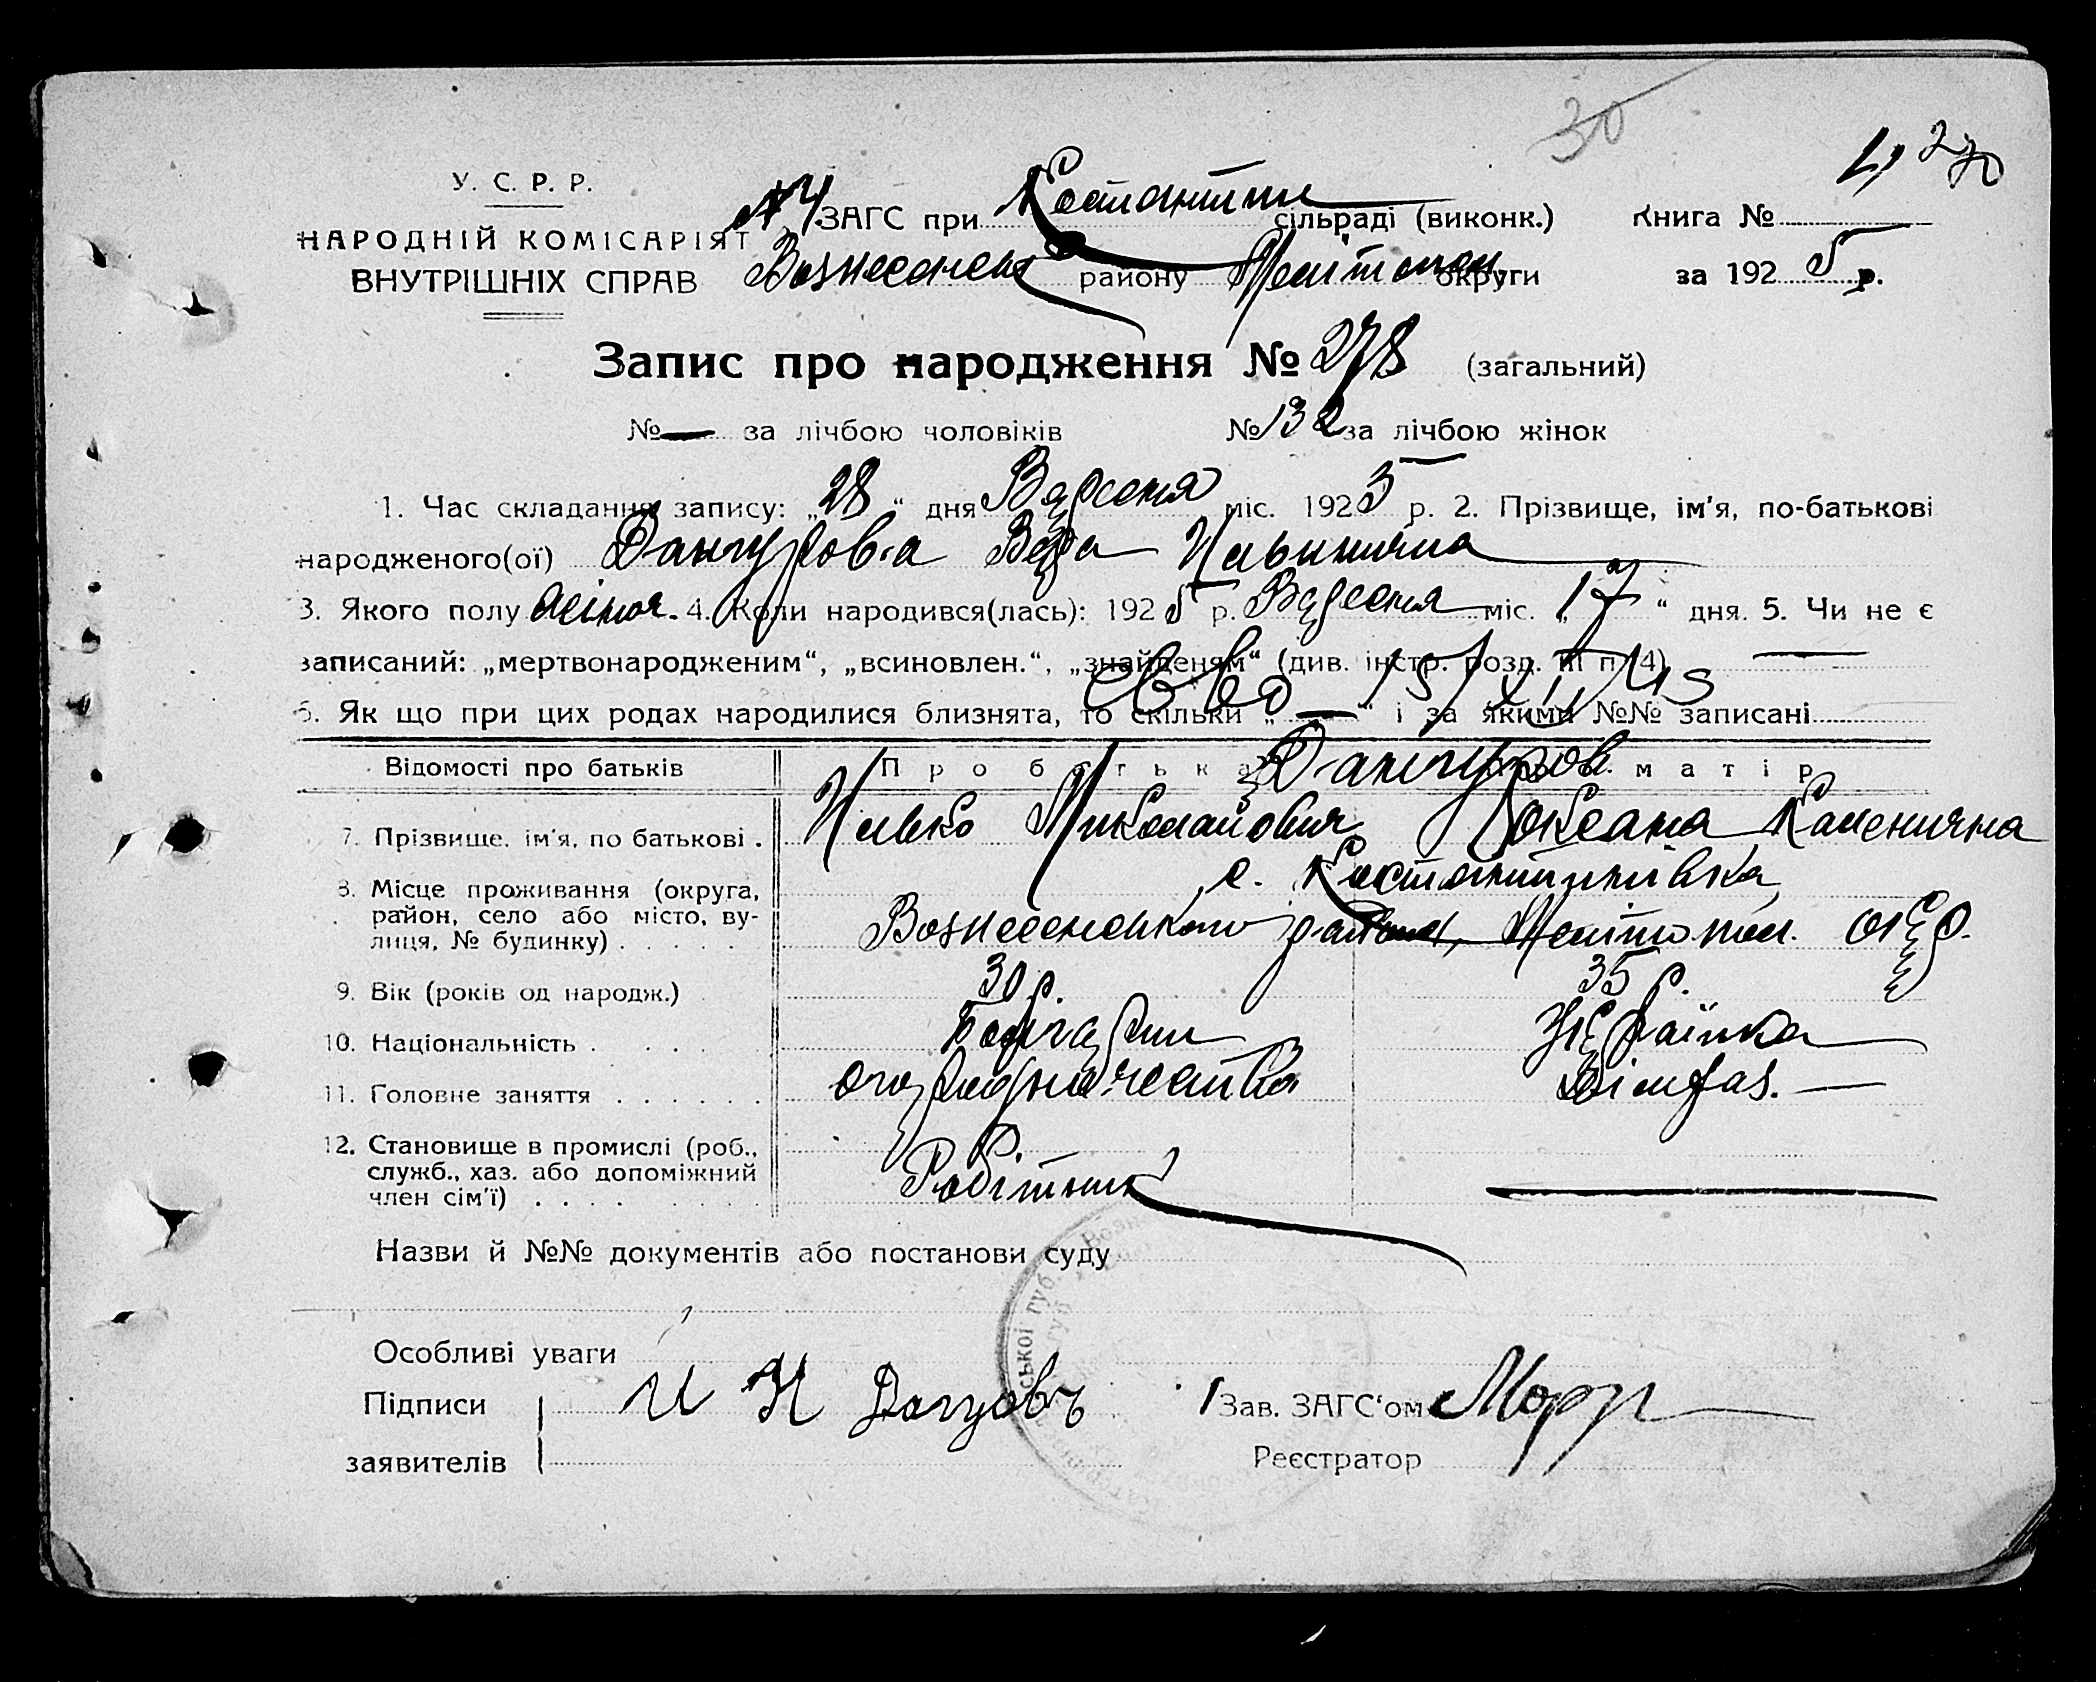 30
У. С. Р. Р.
НАРОДНІЙ КОМІСАРІЯТ
ВНУТРІШНІХ СПРАВ
№ 4 ЗАГС при Костантин сільраді (виконк.) Книга №
Вознесенськ району Мелітопол округи за 192 5 р.
Запис про народження № 278 (загальний)
№ — за лічбою чоловіків № 132 за лічбою жінок
1. Час складання запису: „28“ дня Вересня міс. 1925 р. 2. Прізвище, ім'я, по-батькові
народженого(ої) Вера Ильинична
3. Якого полу жіноч. 4. Коли народився(лась): 1925 р. Вересня міс. „17“ дня. 5. Чи не є
записаний: „мертвонародженим“, „всиновлен.“, „знайденям“ (див. інстр. розд. III п. 4) —
6. Як що при цих родах народилися близнята, то скільки „—“ і за якими №№ записані
Відомості про батьків Про батька матір
7. Прізвище, ім'я, по батькові . Илько Миколайович Оксана
8. Місце проживання (округа, район, село або місто, вулиця, № будинку) с. Костантинівка
Вознесенського району, Мелітопол. окр.
9. Вік (років од народж.) 30 р. 35 р.
10. Національність Болгарин Українка
11. Головне заняття
12. Становище в промислі (роб., служб., хаз. або допоміжний член сім'ї) Робітник —
Назви й №№ документів або постанови суду
Особливі уваги
Підписи И Н
заявителів
Зав. ЗАГС'ом
Реєстратор